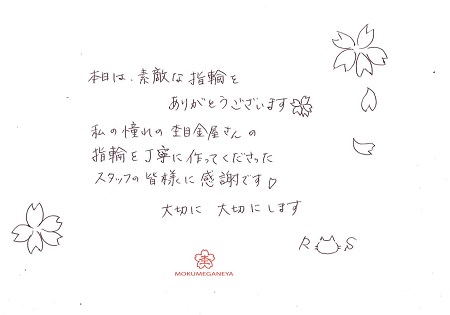 本日は、素敵な指輪を
ありがとうございます
私の憧れの杢目金屋さんの
指輪を丁寧に作ってくださった
スタッフの皆様に感謝です♡
大切に 大切にします
R S
杢
MOKUMEGANEYA